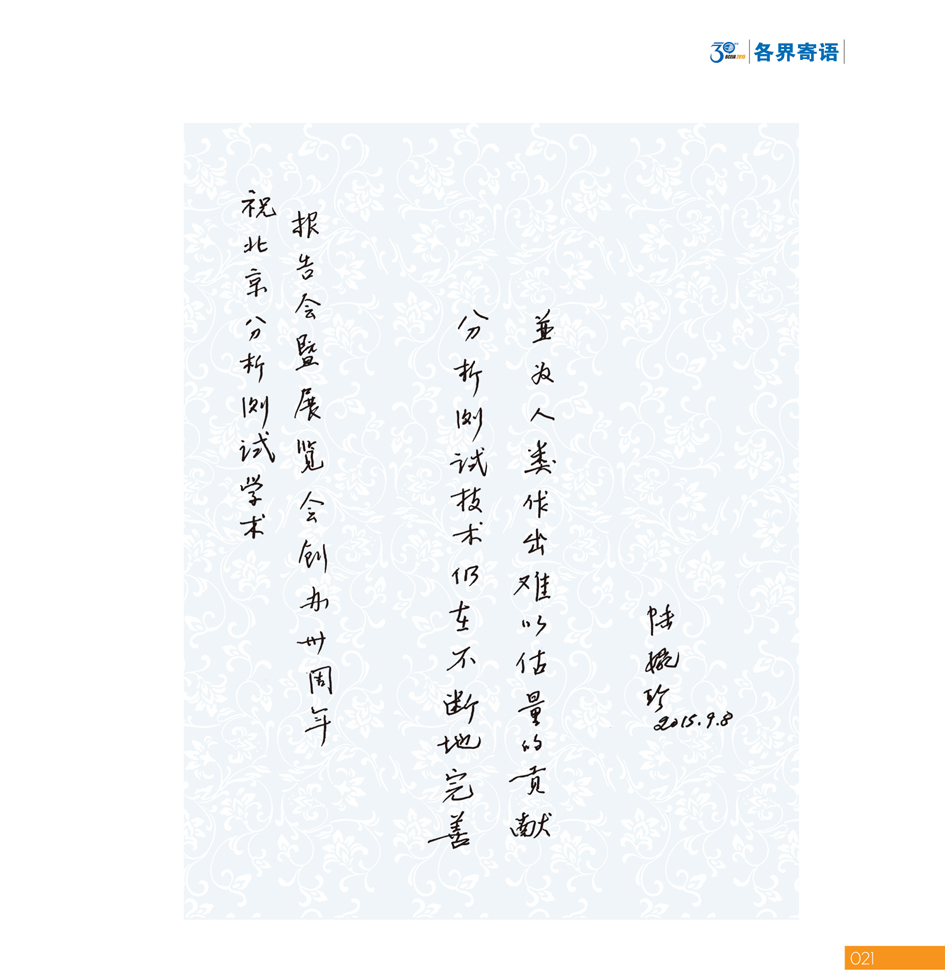 30
BCEIA 2015
各界寄语
祝北京分析测试学术
报告会暨展览会创办卅周年
分析测试技术仍在不断地完善
並为人类作出难以估量的贡献
陆婉珍
2015.9.8
021